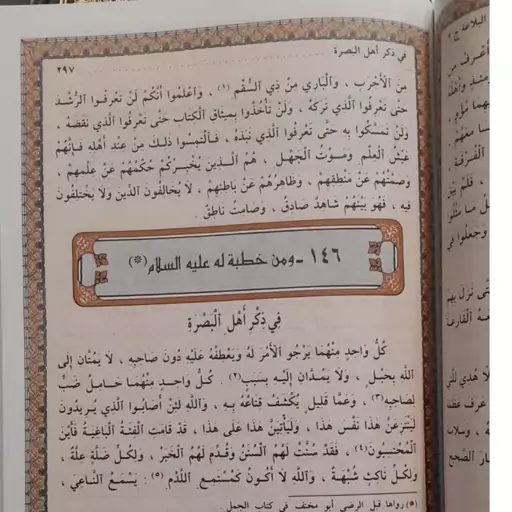 في ذكر أهل البصرة
٢٩٧
مِنَ الْأَجْرَبِ ، وَالْبَارِي مِنْ ذِي السُّقْمِ (١) ، وَاعْلَمُوا أَنَّكُمْ لَنْ تَعْرِفُوا الرُّشْدَ
حَتَّى تَعْرِفُوا الَّذِي تَرَكَهُ ، وَلَنْ تَأْخُذُوا بِمِيثَاقِ الْكِتَابِ حَتَّى تَعْرِفُوا الَّذِي نَقَضَهُ ،
وَلَنْ تَمَسَّكُوا بِهِ حَتَّى تَعْرِفُوا الَّذِي نَبَذَهُ ، فَالْتَمِسُوا ذَلِكَ مِنْ عِنْدِ أَهْلِهِ فَإِنَّهُمْ
عَيْشُ الْعِلْمِ وَمَوْتُ الْجَهْلِ ، هُمُ الَّذِينَ يُخْبِرُكُمْ حُكْمُهُمْ عَنْ عِلْمِهِمْ ،
وَصَمْتُهُمْ عَنْ مَنْطِقِهِمْ ، وَظَاهِرُهُمْ عَنْ بَاطِنِهِمْ ، لَا يُخَالِفُونَ الدِّينَ وَلَا يَخْتَلِفُونَ
فِيهِ ، فَهُوَ بَيْنَهُمْ شَاهِدٌ صَادِقٌ ، وَصَامِتٌ نَاطِقٌ .
١٤٦ - ومن خطبة له عليه السلام (*)
فِي ذِكْرِ أَهْلِ الْبَصْرَةِ
كُلُّ وَاحِدٍ مِنْهُمَا يَرْجُو الْأَمْرَ لَهُ وَيَعْطِفُهُ عَلَيْهِ دُونَ صَاحِبِهِ ، لَا يَمُتَّانِ إِلَى
اللَّهِ بِحَبْلٍ ، وَلَا يَمُدَّانِ إِلَيْهِ بِسَبَبٍ (٢) . كُلُّ وَاحِدٍ مِنْهُمَا حَامِلُ ضَبٍّ
لِصَاحِبِهِ (٣) ، وَعَمَّا قَلِيلٍ يُكْشَفُ قِنَاعُهُ بِهِ ، وَاللَّهِ لَئِنْ أَصَابُوا الَّذِي يُرِيدُونَ
لَيَنْتَزِعَنَّ هَذَا نَفْسَ هَذَا ، وَلَيَأْتِيَنَّ هَذَا عَلَى هَذَا ، قَدْ قَامَتِ الْفِئَةُ الْبَاغِيَةُ فَأَيْنَ
الْمُحْتَسِبُونَ (٤) ، فَقَدْ سُنَّتْ لَهُمُ السُّنَنُ وَقُدِّمَ لَهُمُ الْخَبَرُ ، وَلِكُلِّ ضَلَّةٍ عِلَّةٌ ،
وَلِكُلِّ نَاكِثٍ شُبْهَةٌ ، وَاللَّهِ لَا أَكُونُ كَمُسْتَمِعِ اللَّدْمِ (٥) : يَسْمَعُ النَّاعِيَ ،
(*) رواها قبل الرضي أبو مخنف في كتاب الجمل